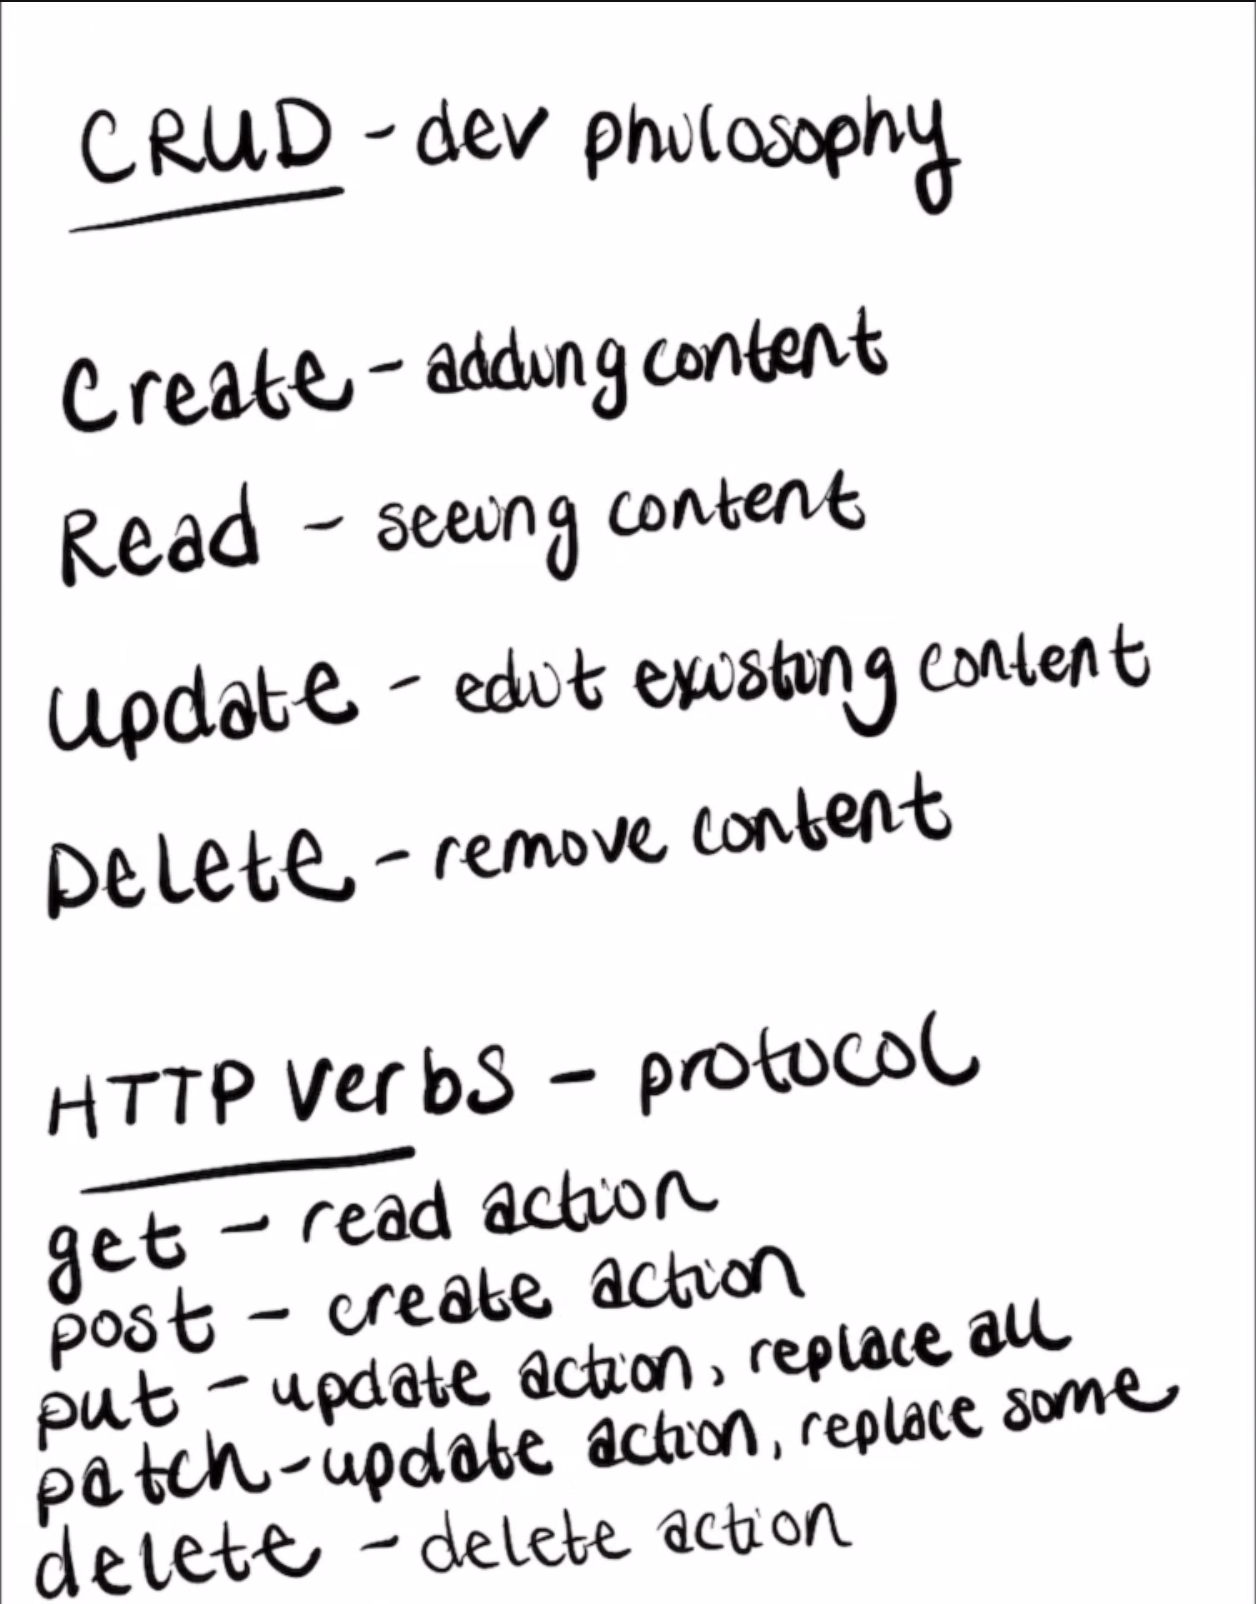 CRUD - dev philosophy
Create - adding content
Read - seeing content
Update - edit existing content
Delete - remove content
HTTP Verbs - protocol
get - read action
post - create action
put - update action, replace all
patch - update action, replace some
delete - delete action